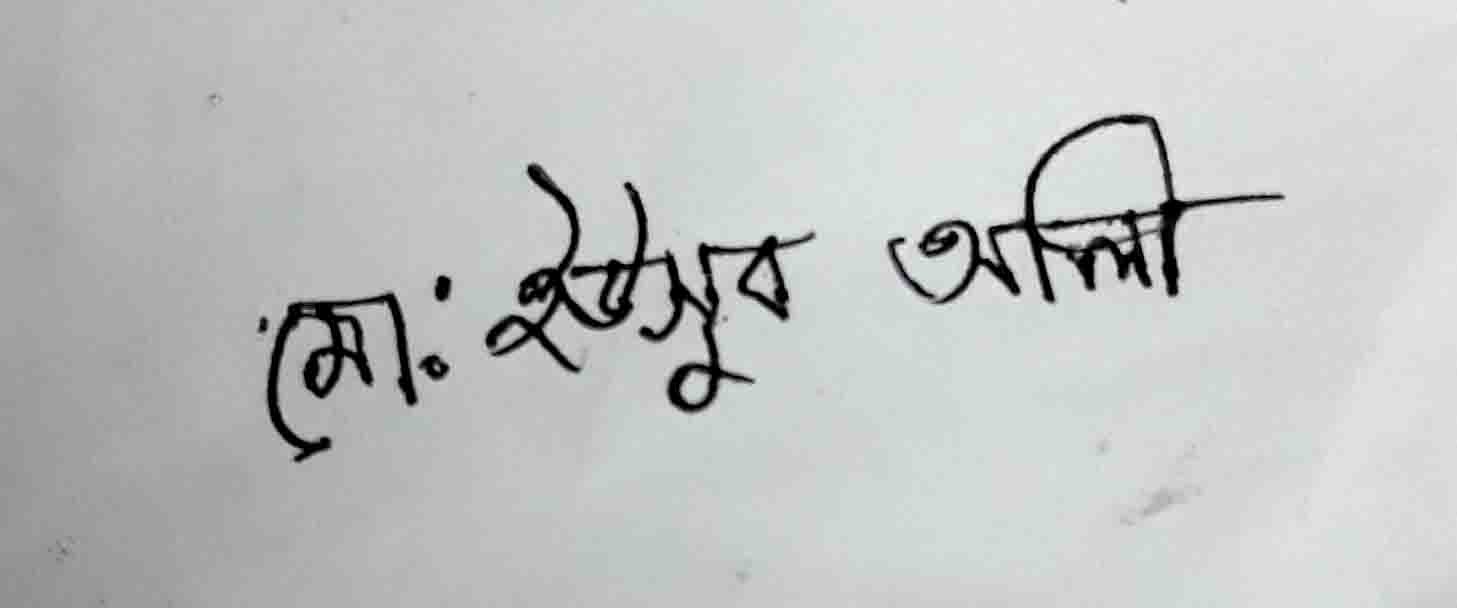 মো: ইউসুব আলী